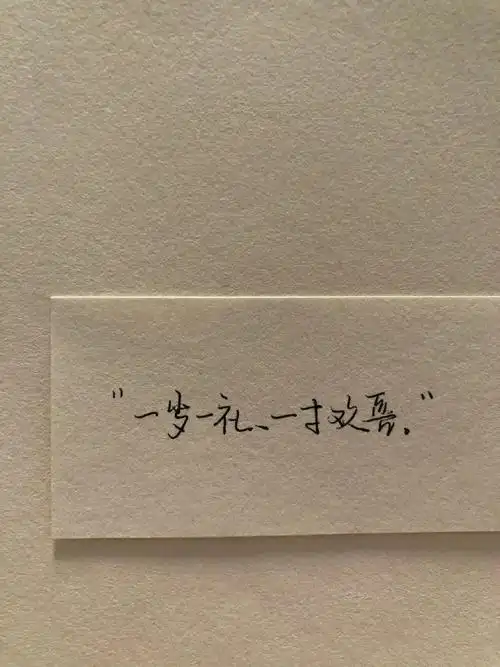 "一岁一礼、一寸欢喜."